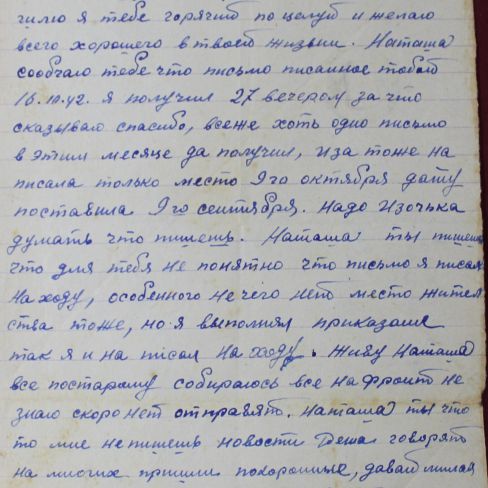 чилю я тебе горячий поцелуй и желаю
всего хорошего в твоей жизни. Наташа
сообчаю тебе что письмо писаиное тобой
16.10.42. я получил 27 вечером за что
сказываю спасибо, всеже хоть одно письмо
в этим месяце да получил, иза тоже на
писала только место 9го октября дату
поставила 9го сентября. Надо Изочька
думать что пишешь. Наташа ты пишешь
что для тебя не понятно что письмо я писал
На ходу, особенного не чего нет место жител
ства тоже, но я выполнял приказание
так я и на писал На ходу. Живу Наташа
все постарому собираюсь все на фронт не
знаю скоро нет отправят. Наташа ты что
то мне не пишешь новости Деша говорят
на многих пришли похоронные, давай милая